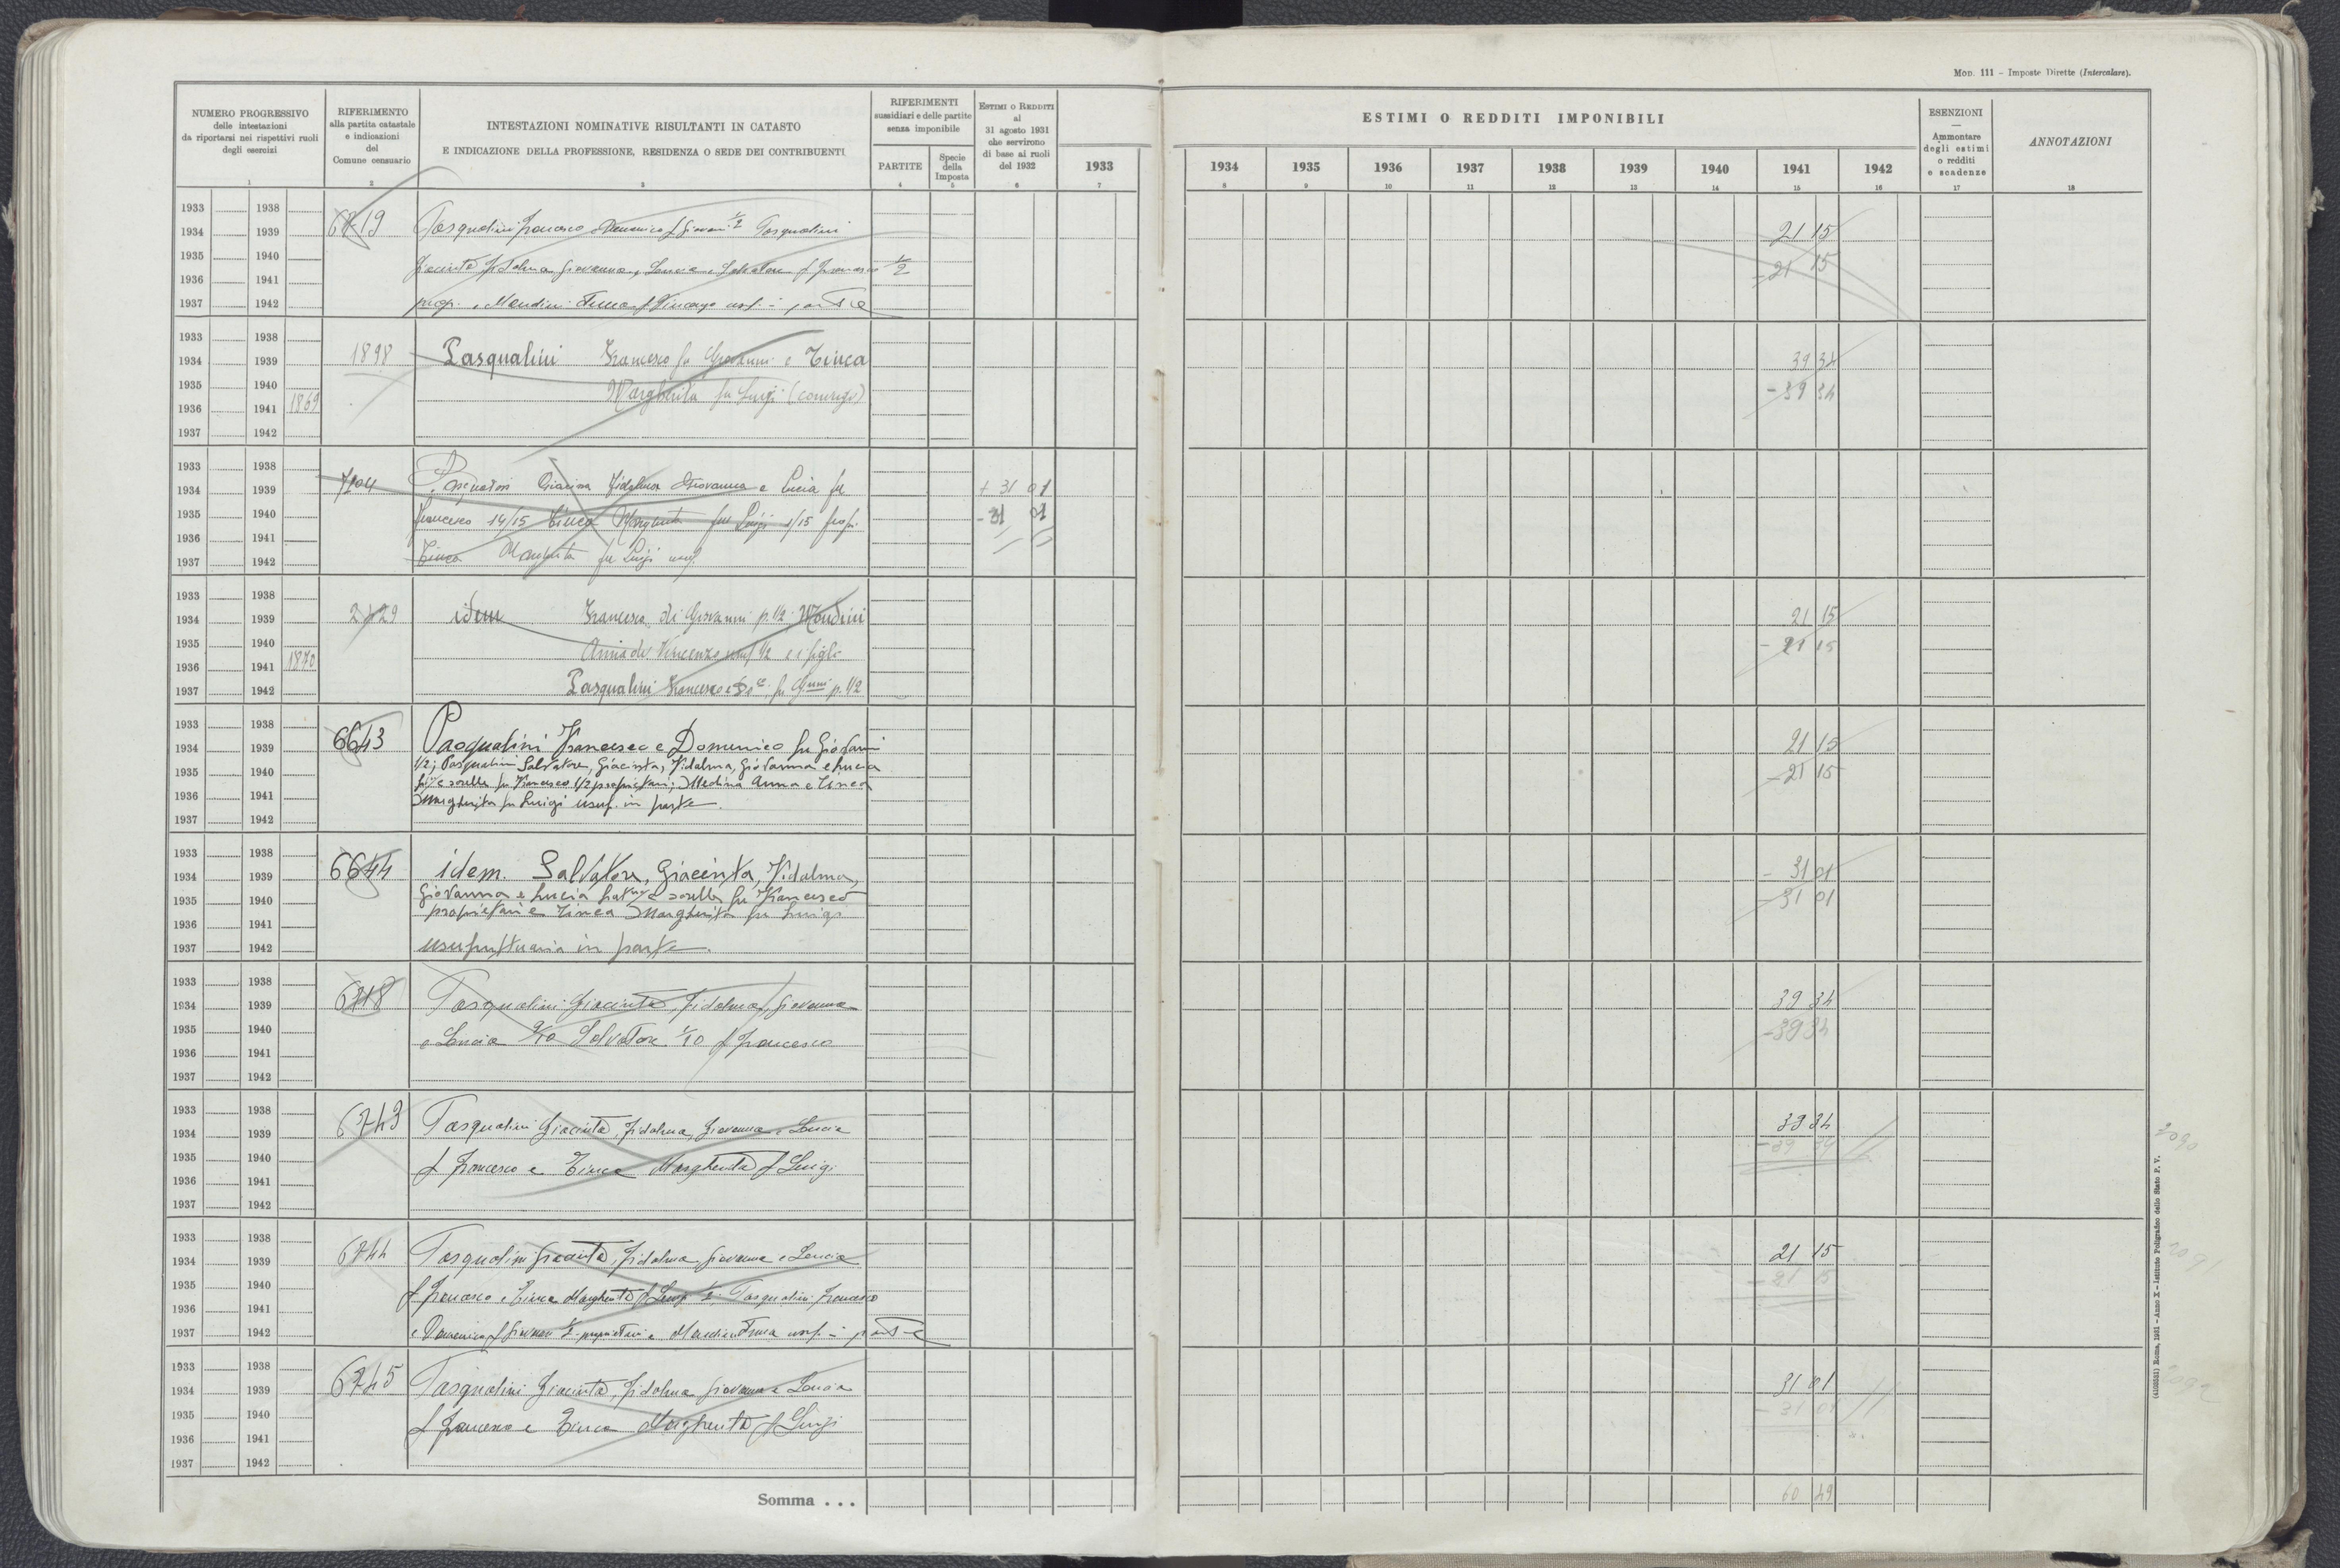 Mod. 111 – Imposte Dirette (Intercalare).
NUMERO PROGRESSIVO
delle intestazioni
da riportarsi nei rispettivi ruoli
degli esercizi
1
RIFERIMENTO
alla partita catastale
e indicazioni
del
Comune censuario
2
INTESTAZIONI NOMINATIVE RISULTANTI IN CATASTO
E INDICAZIONE DELLA PROFESSIONE, RESIDENZA O SEDE DEI CONTRIBUENTI
3
RIFERIMENTI
sussidiari e delle partite
senza imponibile
PARTITE
4
Specie
della
Imposta
5
Estimi o Redditi
al
31 agosto 1931
che servirono
di base ai ruoli
del 1932
6
ESTIMI O REDDITI IMPONIBILI
1933 1934 1935 1936 1937 1938 1939 1940 1941 1942
7 8 9 10 11 12 13 14 15 16
ESENZIONI
—
Ammontare
degli estimi
o redditi
e scadenze
17
ANNOTAZIONI
18
1933 1938
1934 1939 Pasqualini Francesco Domenico f Giovanni 1/2 Pasqualini 21 15
1935 1940 Giacinta Fidalma Giovanna, Lucia e Salvatore f Francesco 1/2 - 21 15
1936 1941
1937 1942 prop. e f Vincenzo usf. in parte
1933 1938
1934 1939 1898 Pasqualini Francesco fu Giovanni e Tinca 39 34
1935 1940 Margherita fu Luigi (coniugi) - 39 34
1936 1941 1869
1937 1942
1933 1938
1934 1939 7204 Giacina Fidalma Giovanna e Lucia fu + 31 01
1935 1940 Francesco 14/15 Tinca Margherita fu Luigi 1/15 prop. - 31 01
1936 1941
1937 1942 Tinca Margherita fu Luigi usuf.
1933 1938
1934 1939 2429 idem Francesco di Giovanni p. 1/2; Mondini 21 15
1935 1940 Anna di Vincenzo usuf 1/2 e i figli - 21 15
1936 1941 1870
1937 1942 Pasqualini Francesco e fu Gnni p. 1/2
1933 1938
1934 1939 6643 Pasqualini Francesco e Domenico fu Giovanni 21 15
1935 1940 1/2; Pasqualini Salvatore, Giacinta, Fidalma, Giovanna e Lucia - 21 15
1936 1941 e sorelle fu Francesco 1/2 proprietari; Medina Anna e Tinca
Margherita fu Luigi usuf. in parte.
1937 1942
1933 1938
1934 1939 6644 idem. Salvatore, Giacinta, Fidalma, - 31 01
1935 1940 Giovanna e Lucia e sorelle fu Francesco 31 01
1936 1941 proprietari e Tinca Margherita fu Luigi
1937 1942 usufruttuaria in parte.
1933 1938
1934 1939 6718 Pasqualini Giacinta, Fidalma, Giovanna 39 34
1935 1940 e Lucia 9/10 Salvatore 1/10 f Francesco - 39 34
1936 1941
1937 1942
1933 1938
1934 1939 6743 Pasqualini Giacinta, Fidalma, Giovanna e Lucia 39 34
1935 1940 f Francesco e Tinca Margherita f Luigi - 39 34
1936 1941
1937 1942
2090
1933 1938
1934 1939 6744 Pasqualini Giacinta, Fidalma, Giovanna e Lucia 21 15
1935 1940 f Francesco e Tinca Margherita f Luigi 1/2, Pasqualini Francesco - 21 15
1936 1941
1937 1942 e Domenico f Giovanni 1/2 proprietari e usf. in parte
2091
1933 1938
1934 1939 6745 Pasqualini Giacinta, Fidalma Giovanna e Lucia 31 01
1935 1940 f Francesco e Tinca Margherita f Luigi - 31 01
1936 1941
1937 1942
2092
Somma . . .
(4108551) Roma, 1931 – Anno X – Istituto Poligrafico dello Stato P. V.